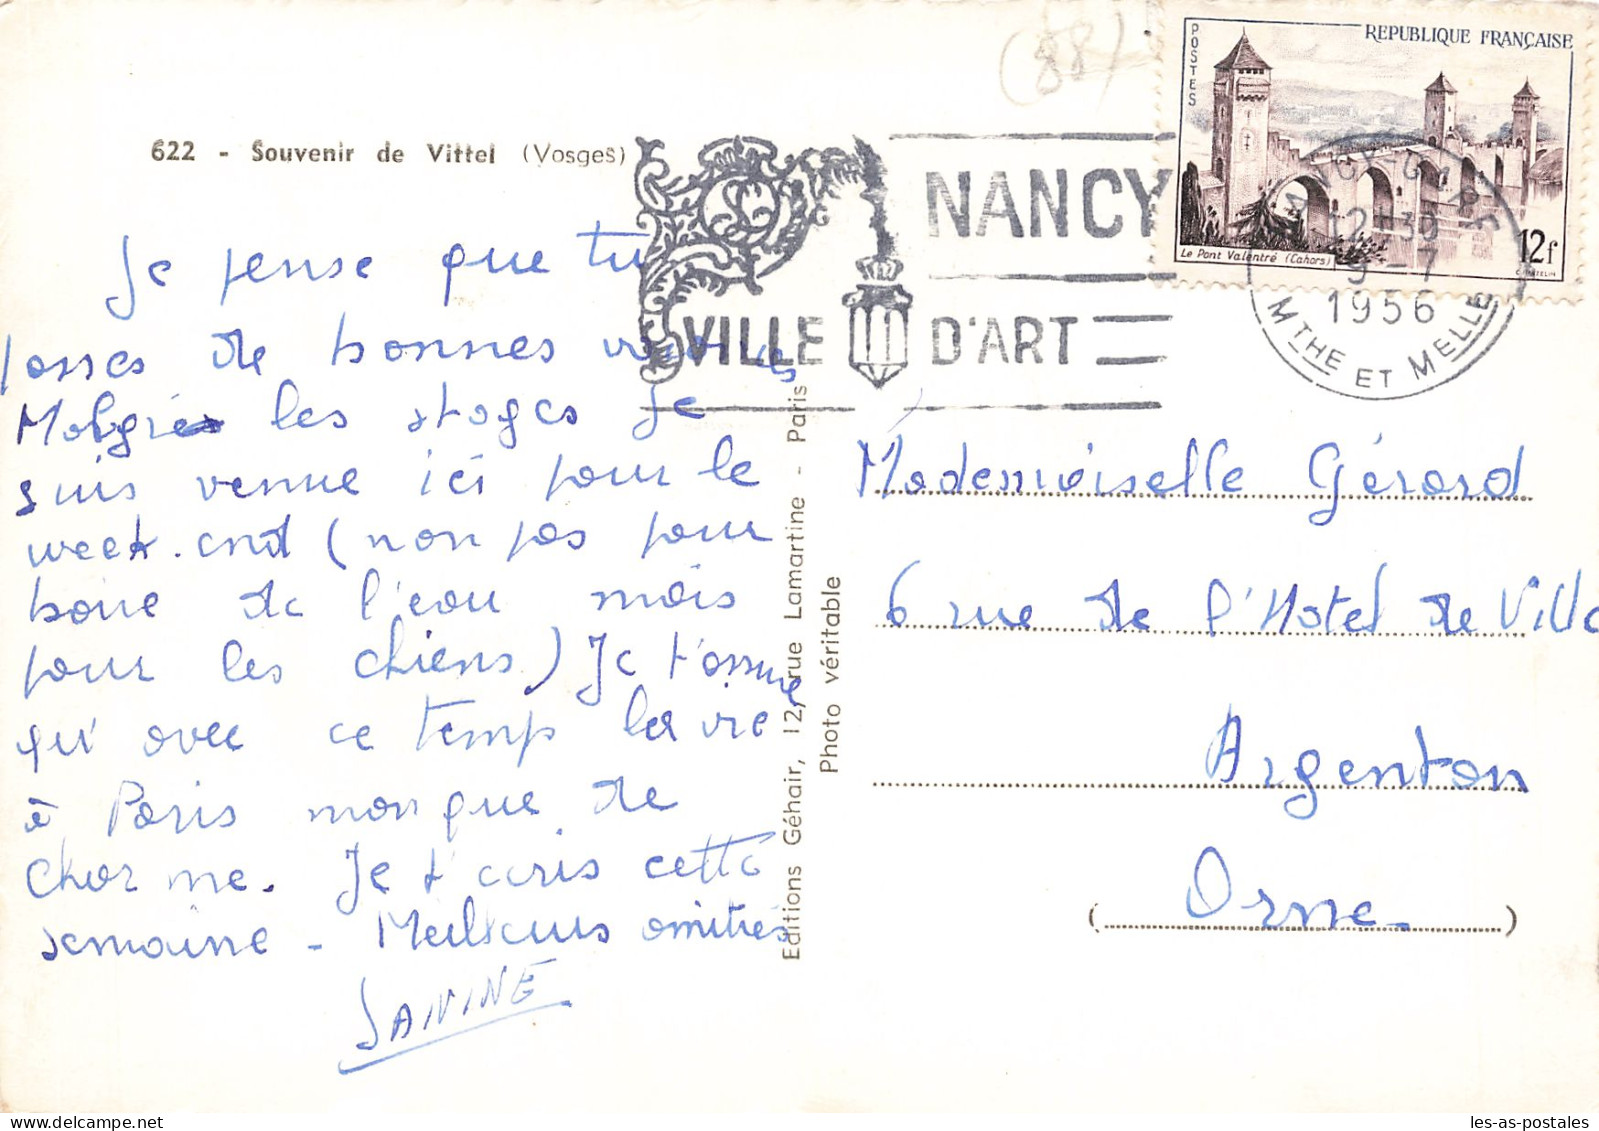 (88)
622 - Souvenir de Vittel (Vosges)
Je pense que tu
passes de bonnes
Malgrés les stages je
suis venue ici pour le
week.end (non pas pour
boire de l'eau mais
pour les chiens) Je t'assure
qu'avec ce temps la vie
à Paris manque de
charme. Je t'écris cette
semaine - Meilleures amitiés
JANINE
Editions Géhair, 12, rue Lamartine - Paris
Photo véritable
NANCY
VILLE D'ART
POSTES
REPUBLIQUE FRANÇAISE
Le Pont Valentré (Cahors)
12f
NANCY-GARE
12-30
9-7
1956
MTHE ET MELLE
Mademoiselle Gérard
6 rue de l'Hotel de Ville
Argenton
(Orne)
les-as-postales
delcampe.net